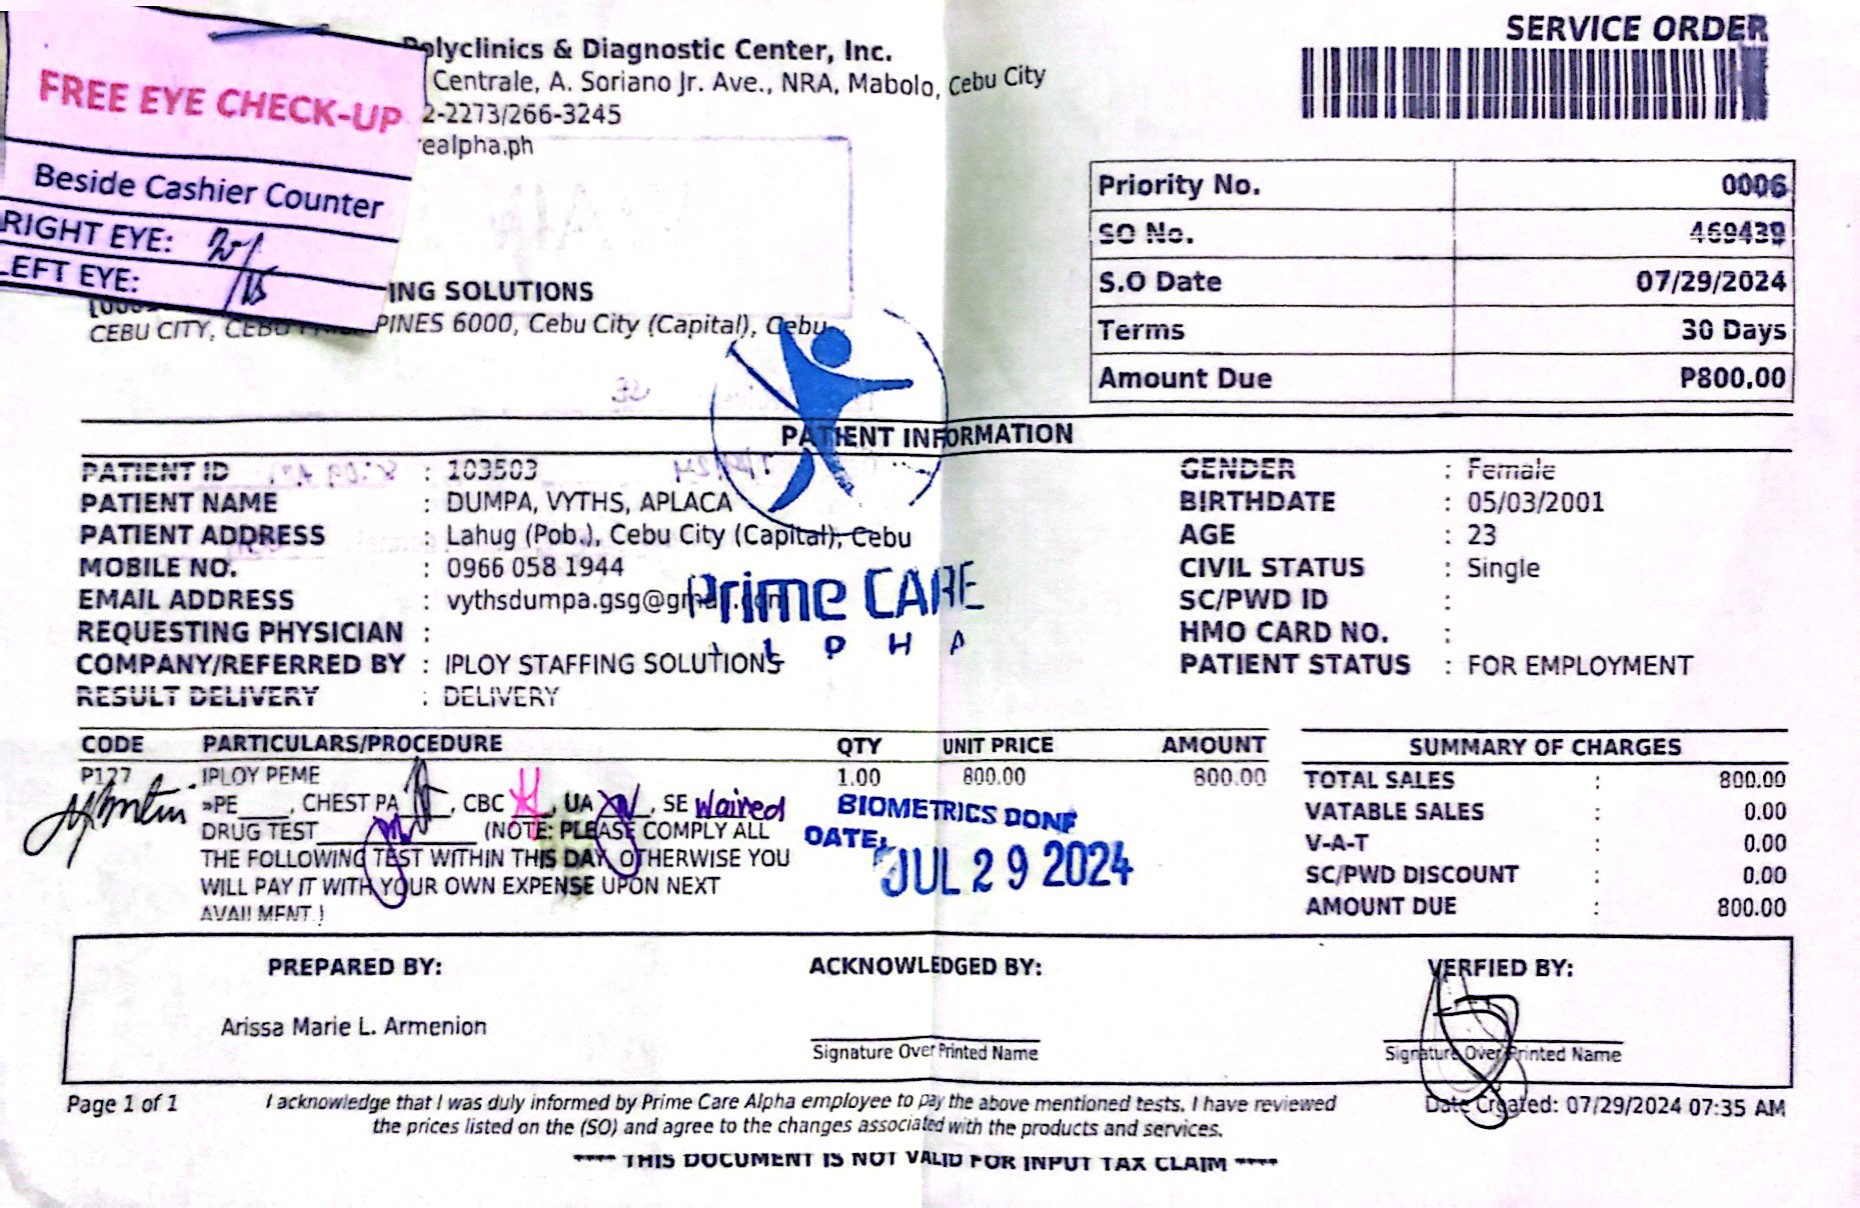 SERVICE ORDER
Polyclinics & Diagnostic Center, Inc.
Centrale, A. Soriano Jr. Ave., NRA, Mabolo, Cebu City
2-2273/266-3245
realpha.ph
FREE EYE CHECK-UP
Beside Cashier Counter
RIGHT EYE:
LEFT EYE:
ING SOLUTIONS
CEBU CITY, CEBU PINES 6000, Cebu City (Capital), Cebu
Priority No. 0006
SO No. 469439
S.O Date 07/29/2024
Terms 30 Days
Amount Due P800.00
PATIENT INFORMATION
PATIENT ID : 103503
PATIENT NAME : DUMPA, VYTHS, APLACA
PATIENT ADDRESS : Lahug (Pob.), Cebu City (Capital), Cebu
MOBILE NO. : 0966 058 1944
EMAIL ADDRESS : vythsdumpa.gsg@gmail.com
REQUESTING PHYSICIAN :
COMPANY/REFERRED BY : IPLOY STAFFING SOLUTIONS
RESULT DELIVERY : DELIVERY
GENDER : Female
BIRTHDATE : 05/03/2001
AGE : 23
CIVIL STATUS : Single
SC/PWD ID :
HMO CARD NO. :
PATIENT STATUS : FOR EMPLOYMENT
Prime CARE
ALPHA
CODE PARTICULARS/PROCEDURE QTY UNIT PRICE AMOUNT
P127 IPLOY PEME 1.00 800.00 800.00
»PE____, CHEST PA____, CBC____, UA____, SE Waived
DRUG TEST____________ (NOTE: PLEASE COMPLY ALL
THE FOLLOWING TEST WITHIN THIS DAY, OTHERWISE YOU
WILL PAY IT WITH YOUR OWN EXPENSE UPON NEXT
AVAILMENT.)
BIOMETRICS DONE
DATE:
JUL 29 2024
SUMMARY OF CHARGES
TOTAL SALES : 800.00
VATABLE SALES : 0.00
V-A-T : 0.00
SC/PWD DISCOUNT : 0.00
AMOUNT DUE : 800.00
PREPARED BY: ACKNOWLEDGED BY: VERFIED BY:
Arissa Marie L. Armenion
Signature Over Printed Name Signature Over Printed Name
Page 1 of 1
I acknowledge that I was duly informed by Prime Care Alpha employee to pay the above mentioned tests. I have reviewed
the prices listed on the (SO) and agree to the changes associated with the products and services.
Date Created: 07/29/2024 07:35 AM
**** THIS DOCUMENT IS NOT VALID FOR INPUT TAX CLAIM ****